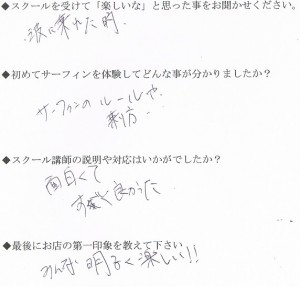 ◆スクールを受けて「楽しいな」と思った事をお聞かせください。
波に乗れた時
◆初めてサーフィンを体験してどんな事が分かりましたか?
サーフィンのルールや
乗り方
◆スクール講師の説明や対応はいかがでしたか?
面白くて
すごく良かった
◆最後にお店の第一印象を教えて下さい
みんな明るく楽しい!!